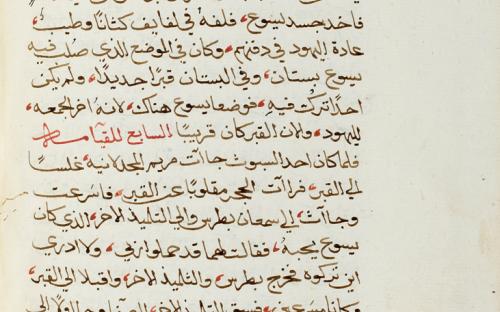 فاخد جسد يسوع، فلفه في لفايف كتانا وطيب،
عادة اليهود في دفنهم، وكان في الموضع الذي صلب فيه
يسوع بستان، وفي البستان قبرا جديدا، ولم يكن
احدا ترك فيه، فوضعا يسوع هناك، لانه اخر الجمعه،
لليهود، ولان القبر كان قريبا السابع للقيامه
فلما كان احد السبوت جاات مريم المجدلانيه غلسا
الي القبر، فراات الحجر مقلوبا عن القبر، فاسرعت
وجاات، الي سمعان بطرس والي التلميذ الاخر، الذي كان
يسوع يحبه، فقالت لهما قد حملوا ربي، ولا ادري
اين تركوه فخرج بطرس، والتلميذ الاخر، واقبلا الي القبر،
وكانا مسرعين، فسبق التلميذ الاخر